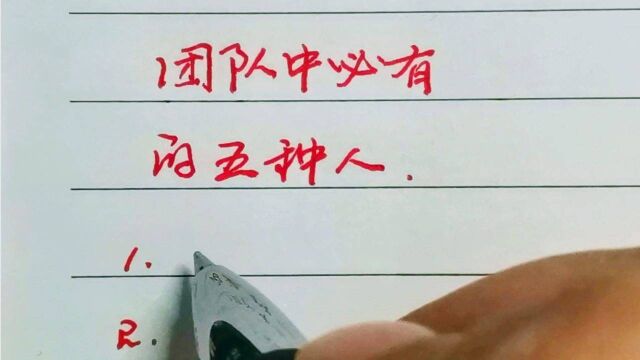 团队中必有
的五种人.
1.
2.